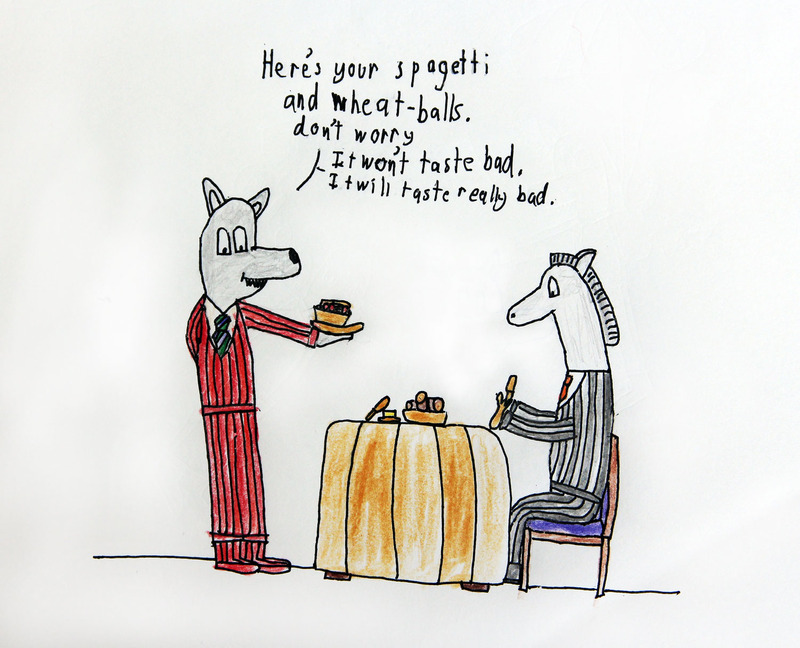 Here's your spagetti
and wheat-balls.
don't worry
It won't taste bad.
It will taste really bad.